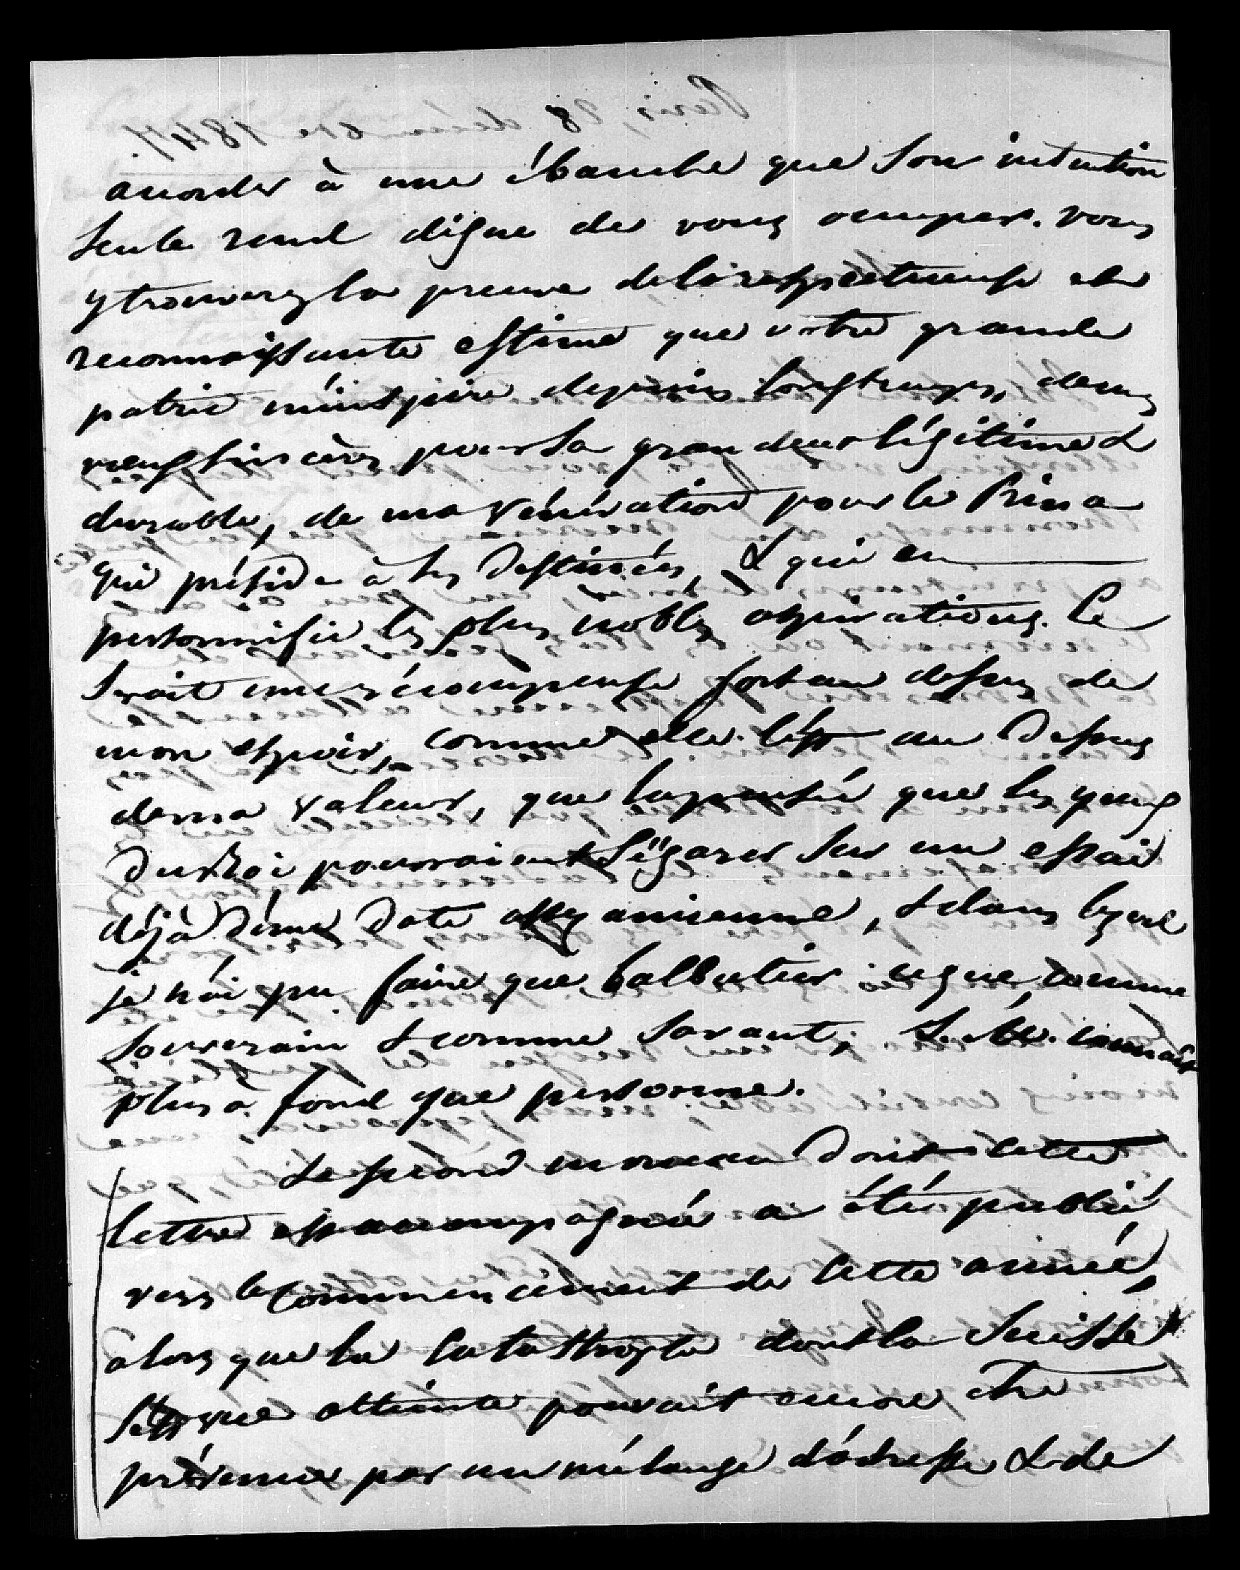 accorder à une ébauche que son intention
seule rend digne de vous occuper. Vous
y trouverez la preuve de la respectueuse et
reconnaissante estime que votre grande
patrie m'inspire depuis longtemps, de mes
vœux sincères pour sa grandeur légitime &
durable, de ma vénération pour le Prince
qui préside à ses destinées, & qui en
personnifie les plus nobles aspirations. Ce
serait une récompense fort au dessus de
mon espoir, comme elle l'est au dessus
de ma valeur, que la pensée que les yeux
du Roi pourraient s'égarer sur un essai
déjà d'une date assez ancienne, & dans lequel
je n'ai pu faire que balbutier ce que, comme
souverain & comme savant, S. M. connaît
plus à fond que personne.
Le second morceau dont cette
lettre est accompagnée a été publié
vers le commencement de cette année,
alors que la catastrophe dont la Suisse
s'est vue atteinte pouvait encore être
prévenue par un mélange d'adresse & de